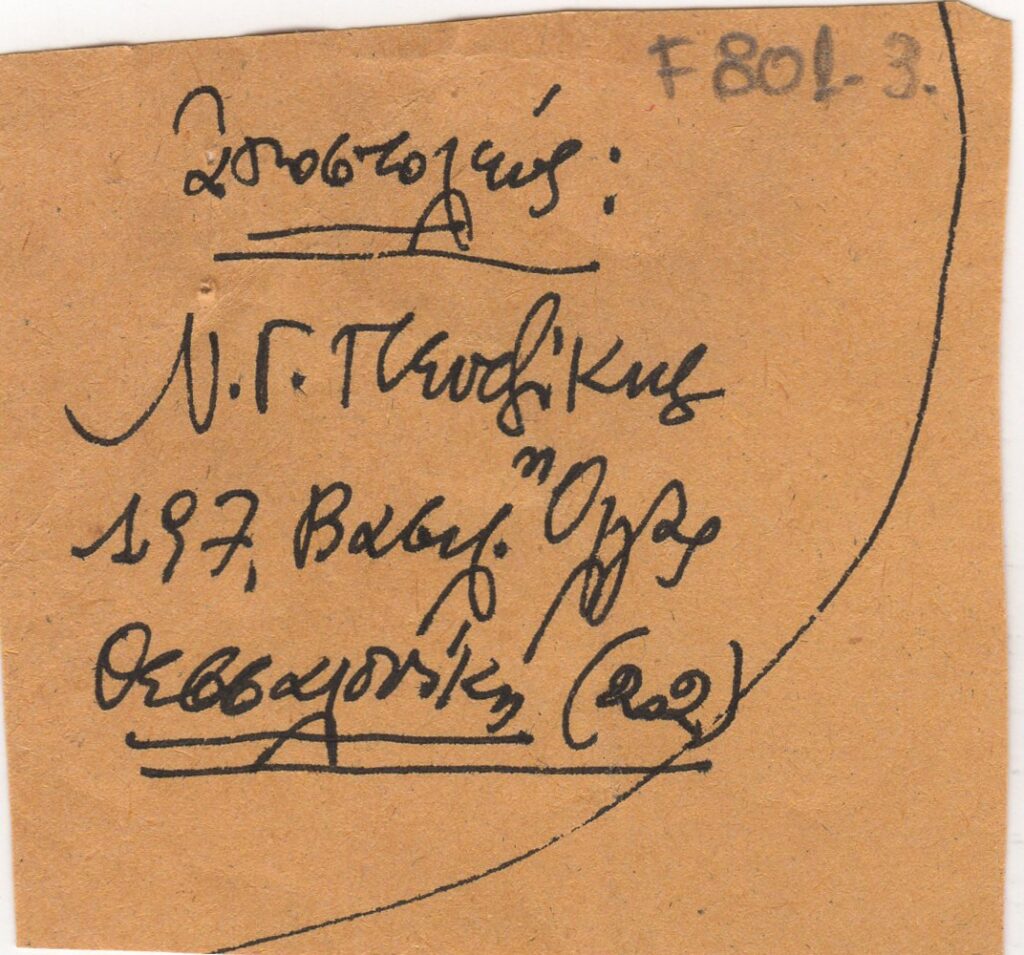 F 801-3.
Ἀποστολεύς:
Ν. Γ. Πεντζίκης
197, Βασιλ. Ὄλγας
Θεσσαλονίκη (202)